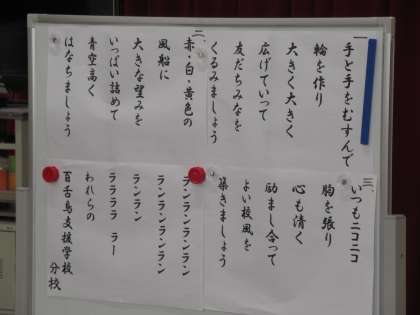 一
手と手をむすんで
輪を作り
大きく大きく
広げていって
友だちみなを
くるみましょう
二、
赤・白・黄色の
風船に
大きな望みを
いっぱい詰めて
青空高く
はなちましょう
三、
いつもニコニコ
胸を張り
心も清く
励まし合って
よい校風を
築きましょう
ランランランラン
ランランランラン
ランラン
ララララ ラー
われらの
百舌鳥支援学校
分校